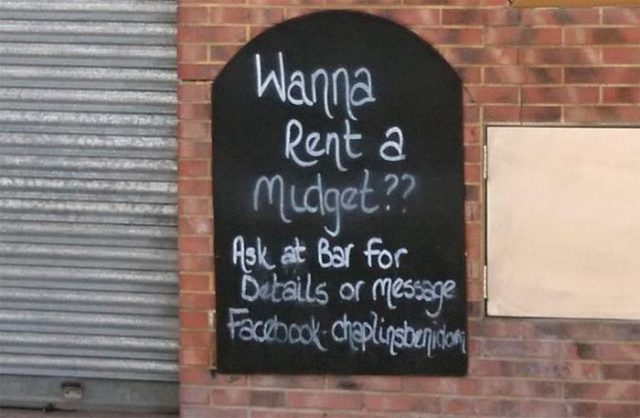 Wanna
Rent a
Midget??
Ask at Bar for
Details or message
Facebook-chaplinsbenidorm